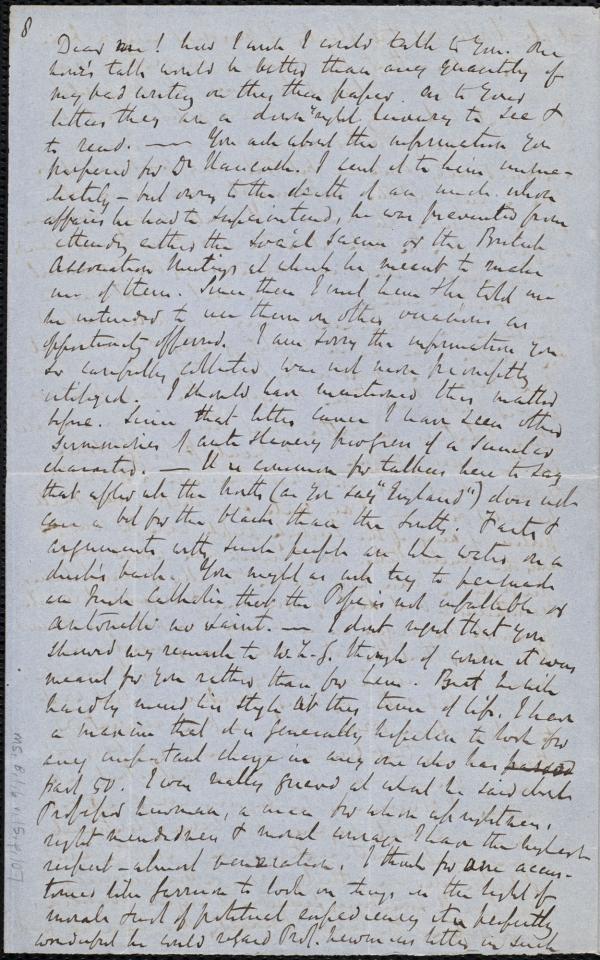 8
Dear me! how I wish I could talk to you. One
hour's talk would be better than any quantity of
my bad writing on this thin paper. As to your
letters they are a downright luxury to see &
to read. — You ask about the information you
prepared for Dr Hancock. I sent it to him imme-
diately – but owing to the death of an uncle whose
affairs he had to superintend, he was prevented from
attending either the Social Science or the British
Association Meetings at which he meant to make
use of them. Since then I met him & he told me
he intended to use them on other occasions as
opportunity offered. I am sorry the information you
so carefully collected was not more promptly
utilized. I should have mentioned this matter
before. Since that letter came I have seen other
summaries of anti slavery progress of a similar
character. — It is common for talkers here to say
that after all the North (as you say "England") does not
care a bit for the blacks than the South. Facts &
arguments with such people are like water on a
duck's back. You might as well try to persuade
an Irish Catholic that the Pope is not infallible or
Antonelli no saint. — I don't regret that you
showed my remark to W.L.G. though of course it was
meant for you rather than for him. But he will
hardly mend his style at this time of life. I have
a maxim that it is generally hopeless to look for
any important change in any one who has passed
past 50. I was really grieved at what he said about
Professor Newman, a man for whose uprightness,
right mindedness & moral courage I have the highest
respect – almost veneration. I think for one accus-
tomed like Garrison to look on things in the light of
morals instead of political expediency it is perfectly
wonderful he could regard Prof. Newman's letter in such